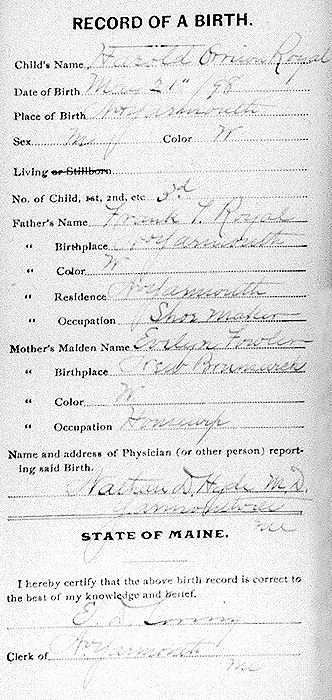 RECORD OF A BIRTH.
Child's Name Harold Royal
Date of Birth 21" /98
Place of Birth No Yarmouth
Sex M Color W
Living or Stillborn
No. of Child, 1st, 2nd, etc 3d
Father's Name Frank T. Royal
" Birthplace No Yarmouth
" Color W
" Residence No Yarmouth
" Occupation Shoe Maker
Mother's Maiden Name Evelyn Fowler
" Birthplace New Brunswick
" Color W
" Occupation Housewife
Name and address of Physician (or other person) report-
ing said Birth.
Nathan D. Hyde M.D.
Me
STATE OF MAINE.
I hereby certify that the above birth record is correct to
the best of my knowledge and belief.
E. Loring
Clerk of No Yarmouth
Me